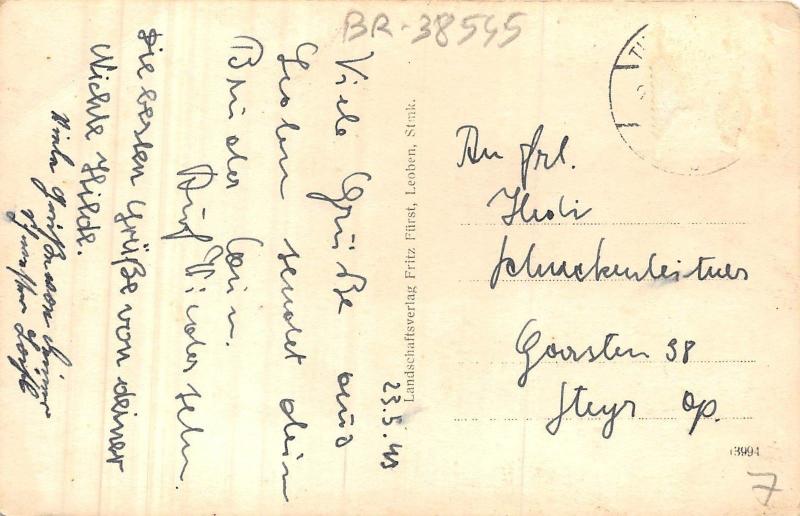 BR-38545
23.5.43
Viele Grüße aus
Leoben sendet dein
Bruder
Auf Wiedersehn.
Die besten Grüße von deiner
Nichte Hilde.
Viele Grüße von
Landschaftsverlag Fritz Fürst, Leoben, Stmk.
An Frl.
Hedi
Schnackenleitner
Garsten 38
Steyr
13994
7